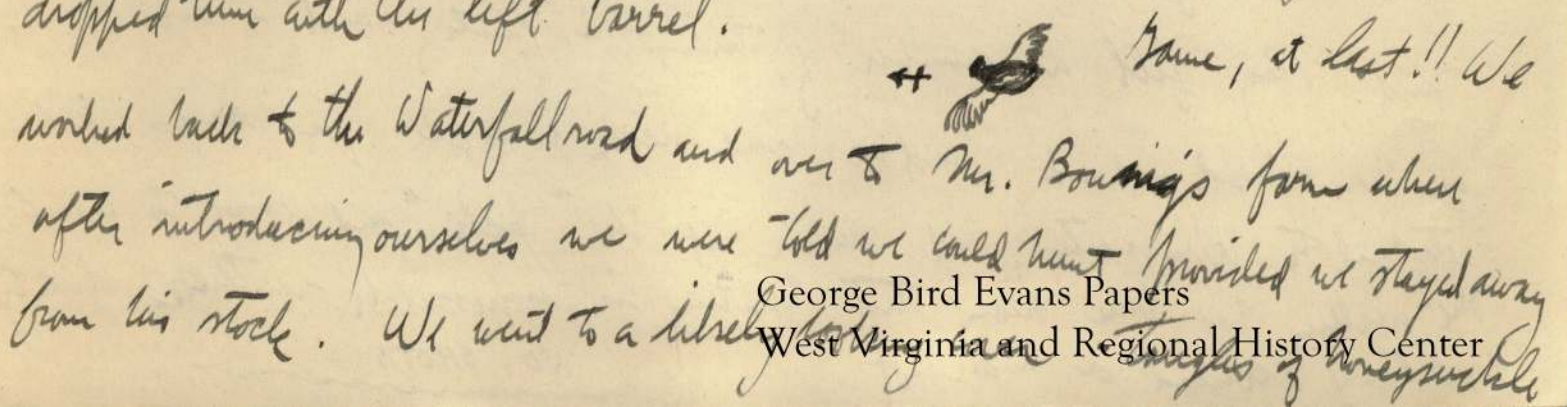 dropped him with the left barrel.
Game, at last!! We
worked back to the Waterfall road and over to Mr. farm where
after introducing ourselves we were told we could hunt provided we stayed away
from his stock. We went to a likely looking tangles of honeysuckle
George Bird Evans Papers
West Virginia and Regional History Center